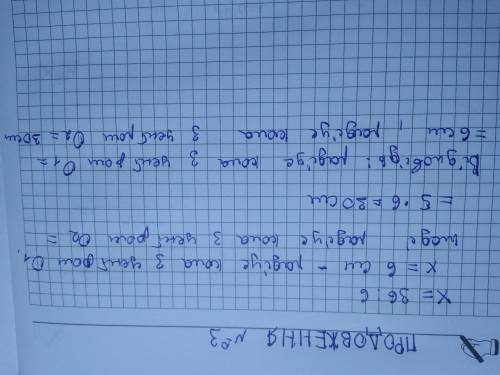 ПРОДОВЖЕННЯ №3
x = 36 : 6
x = 6 см – радіус кола з центром O1,
тоді радіус кола з центром O2 =
= 5·6 = 30 см
Відповідь: радіус кола з центром O1 =
= 6 см, радіус кола з центром O2 = 30 см